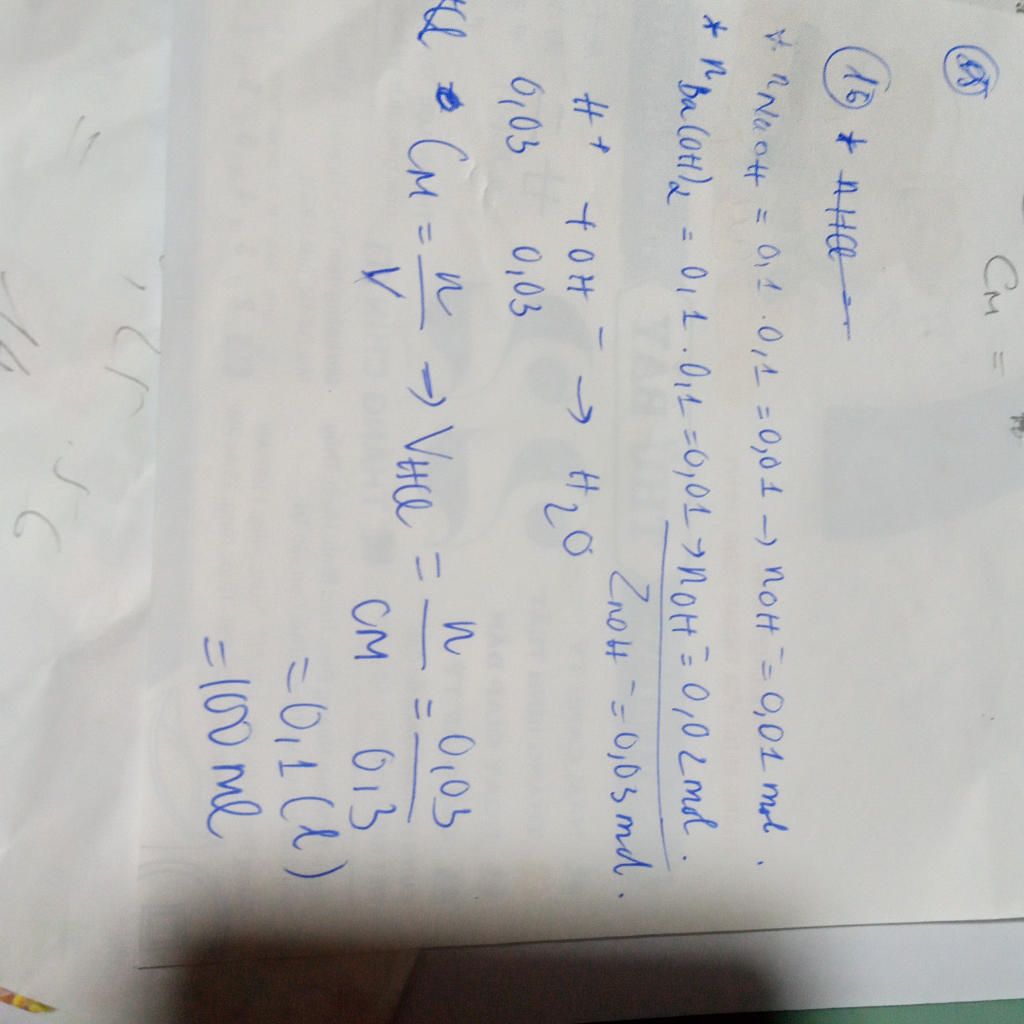 CM =
16 * nHCl
* nNaOH = 0,1 . 0,1 = 0,01 → nOH⁻ = 0,01 mol .
* nBa(OH)2 = 0,1 . 0,1 = 0,01 → nOH⁻ = 0,02 mol .
ΣnOH⁻ = 0,03 mol .
H⁺ + OH⁻ → H2O
0,03 0,03
HCl CM = n/V → VHCl = n/CM = 0,03/0,3
= 0,1 (l)
= 100 ml